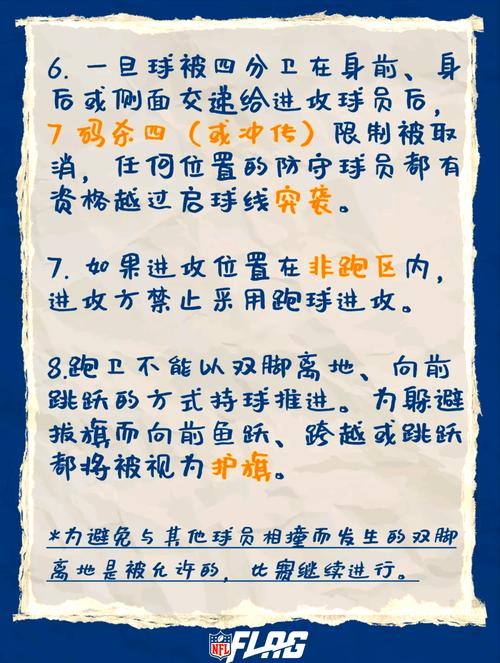 6. 一旦球被四分卫在身前、身
后或侧面交递给进攻球员后,
7 码杀四（或冲传）限制被取
消, 任何位置的防守球员都有
资格越过启球线突袭。
7. 如果进攻位置在非跑区内,
进攻方禁止采用跑球进攻。
8.跑卫不能以双脚离地、向前
跳跃的方式持球推进。为躲避
拔旗而向前鱼跃、跨越或跳跃
都将被视为护旗。
*为避免与其他球员相撞而发生的双脚
离地是被允许的, 比赛继续进行。
NFL FLAG